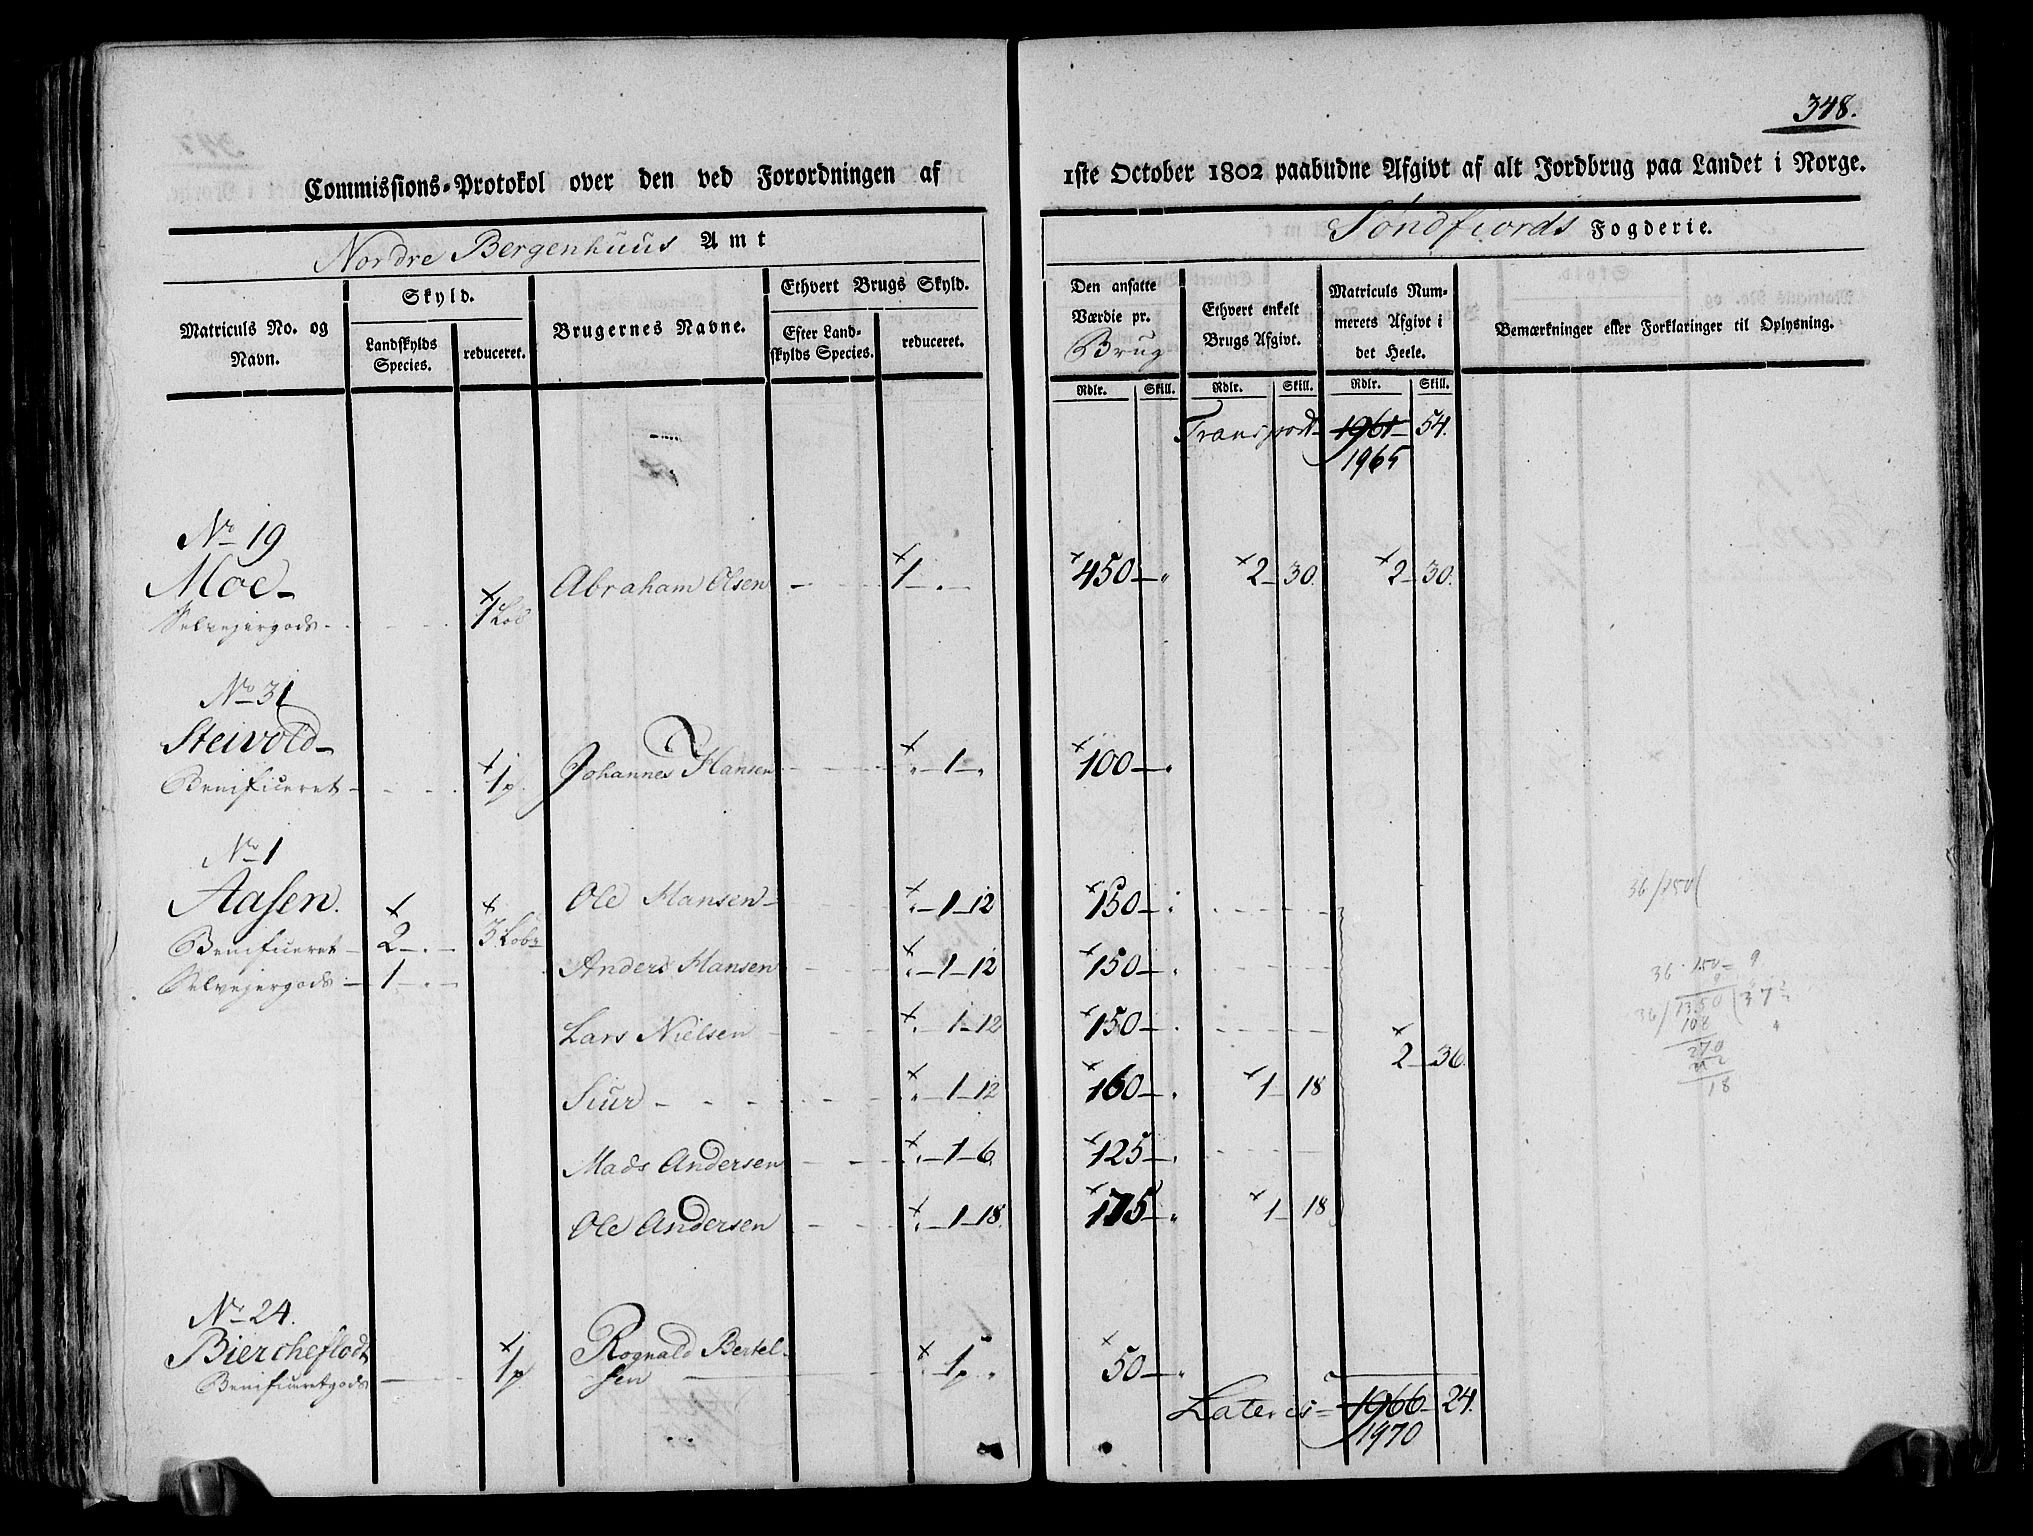 348.
Commissions-Protokol over den ved Forordningen af 1ste October 1802 paabudne Afgivt af alt Jordbrug paa Landet i Norge.
Nordre Bergenhuus Amt
Søndfiords Fogderie.
Matriculs No. og Navn.
Skyld.
Landskylds Species.
reduceret.
Brugernes Navne.
Ethvert Brugs Skyld.
Efter Landskylds Species.
reduceret.
Den ansatte Værdie pr. Brug
Rdlr. Skill.
Ethvert enkelt Brugs Afgivt.
Rdlr. Skill.
Matriculs Nummerets Afgivt i det Heele.
Rdlr. Skill.
Bemærkninger eller Forklaringer til Oplysning.
Transport 1961 54.
1965
No 19
Moe Abraham Olsen 1 450 2 30. 2 30.
Selvejergods 1 Lob
No 31
Steivold Johannes Hansen 1 100
Benificeret 1 p
No 1
Aasen. Ole Hansen 1 12 150
Benificeret 2 3 Lober
Anders Hansen 1 12 150
Selvejergods 1
Lars Nielsen 1 12 150
2 36.
Siur 1 12 160 1 18
Mads Andersen 1 6 125
Ole Andersen 1 18. 175 1 18
36/150(
36 150 9
9
36/1350(37
108
270
18
No 24.
Biercheflodt Rognald Bertelsen 1 p 50
Benificeretgods 1 p
Lateris 1966 24.
1970